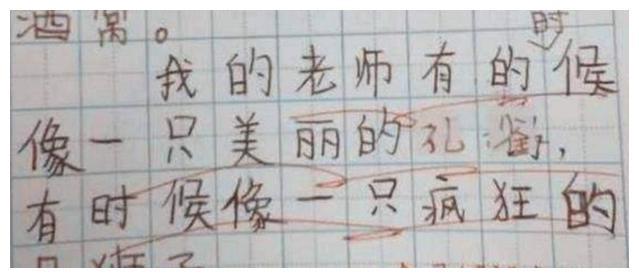 酒窝。
我的老师有的时候
像一只美丽的孔雀，
有时候像一只疯狂的
狮子